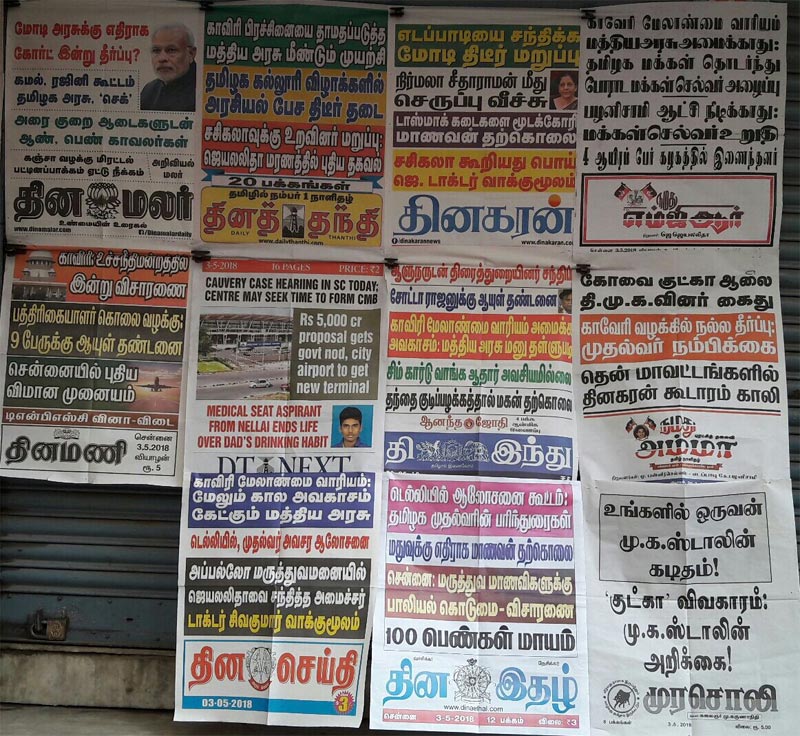 மோடி அரசுக்கு எதிராக
கோர்ட் இன்று தீர்ப்பு?
கமல், ரஜினி கூட்டம்
தமிழக அரசு, 'செக்'
அரை குறை ஆடைகளுடன்
ஆண், பெண் காவலர்கள்
கஞ்சா வழக்கு மிரட்டல்
பட்டினப்பாக்கம் ஏட்டு நீக்கம்
அறிவியல்
மலர்
தின மலர்
உண்மையின் உரைகல்
www.dinamalar.com
/Dinamalardaily
காவிரி பிரச்சினையை தாமதப்படுத்த
மத்திய அரசு மீண்டும் முயற்சி
தமிழக கல்லூரி விழாக்களில்
அரசியல் பேச திடீர் தடை
சசிகலாவுக்கு உறவினர் மறுப்பு:
ஜெயலலிதா மரணத்தில் புதிய தகவல்
20 பக்கங்கள்
தமிழில் நம்பர் 1 நாளிதழ்
தினத் தந்தி
DAILY THANTHI
www.dailythanthi.com
எடப்பாடியை சந்திக்க
மோடி திடீர் மறுப்பு
நிர்மலா சீதாராமன் மீது
செருப்பு வீச்சு
டாஸ்மாக் கடைகளை மூடக்கோரி
மாணவன் தற்கொலை
சசிகலா கூறியது பொய்
ஜெ. டாக்டர் வாக்குமூலம்
தினகரன்
/dinakarannews
www.dinakaran.com
காவேரி மேலாண்மை வாரியம்
மத்தியஅரசு அமைக்காது:
தமிழக மக்கள் தொடர்ந்து
போராட மக்கள்செல்வர் அழைப்பு
பழனிசாமி ஆட்சி நீடிக்காது:
மக்கள்செல்வர் உறுதி
4 ஆயிரம் பேர் கழகத்தில் இணைந்தனர்
புதிய
எம்ஜிஆர்
சென்னை 3.5.2018
காவிரி: உச்சநீதிமன்றத்தில்
இன்று விசாரணை
பத்திரிகையாளர் கொலை வழக்கு:
9 பேருக்கு ஆயுள் தண்டனை
சென்னையில் புதிய
விமான முனையம்
டிஎன்பிஎஸ்சி வினா-விடை
தினமணி
சென்னை
3.5.2018
வியாழன்
ரூ. 5
3-5-2018 16 PAGES PRICE: ₹2
CAUVERY CASE HEARIING IN SC TODAY;
CENTRE MAY SEEK TIME TO FORM CMB
Rs 5,000 cr
proposal gets
govt nod, city
airport to get
new terminal
MEDICAL SEAT ASPIRANT
FROM NELLAI ENDS LIFE
OVER DAD'S DRINKING HABIT
DT NEXT
ஆளுநருடன் திரைத்துறையினர் சந்திப்
சோட்டா ராஜனுக்கு ஆயுள் தண்டனை
காவிரி மேலாண்மை வாரியம் அமைக்க
அவகாசம்: மத்திய அரசு மனு தள்ளுபடி
சிம் கார்டு வாங்க ஆதார் அவசியமில்லை
தந்தை குடிப்பழக்கத்தால் மகன் தற்கொலை
ஆனந்த ஜோதி
இந்து
கோவை குட்கா ஆலை
தி.மு.க.வினர் கைது
காவேரி வழக்கில் நல்ல தீர்ப்பு:
முதல்வர் நம்பிக்கை
தென் மாவட்டங்களில்
தினகரன் கூடாரம் காலி
நமது
அம்மா
காவிரி மேலாண்மை வாரியம்:
மேலும் கால அவகாசம்
கேட்கும் மத்திய அரசு
டெல்லியில், முதல்வர் அவசர ஆலோசனை
அப்பல்லோ மருத்துவமனையில்
ஜெயலலிதாவை சந்தித்த அமைச்சர்
டாக்டர் சிவகுமார் வாக்குமூலம்
தின செய்தி
03-05-2018
3
டெல்லியில் ஆலோசனை கூட்டம்:
தமிழக முதல்வரின் பரிந்துரைகள்
மதுவுக்கு எதிராக மாணவன் தற்கொலை
சென்னை: மருத்துவ மாணவிகளுக்கு
பாலியல் கொடுமை - விசாரணை
100 பெண்கள் மாயம்
தின இதழ்
சென்னை 3-5-2018 12 பக்கம் விலை: ₹3
உங்களில் ஒருவன்
மு.க.ஸ்டாலின்
கடிதம்!
'குட்கா' விவகாரம்:
மு.க.ஸ்டாலின்
அறிக்கை!
முரசொலி
விலை: ரூ. 5.00